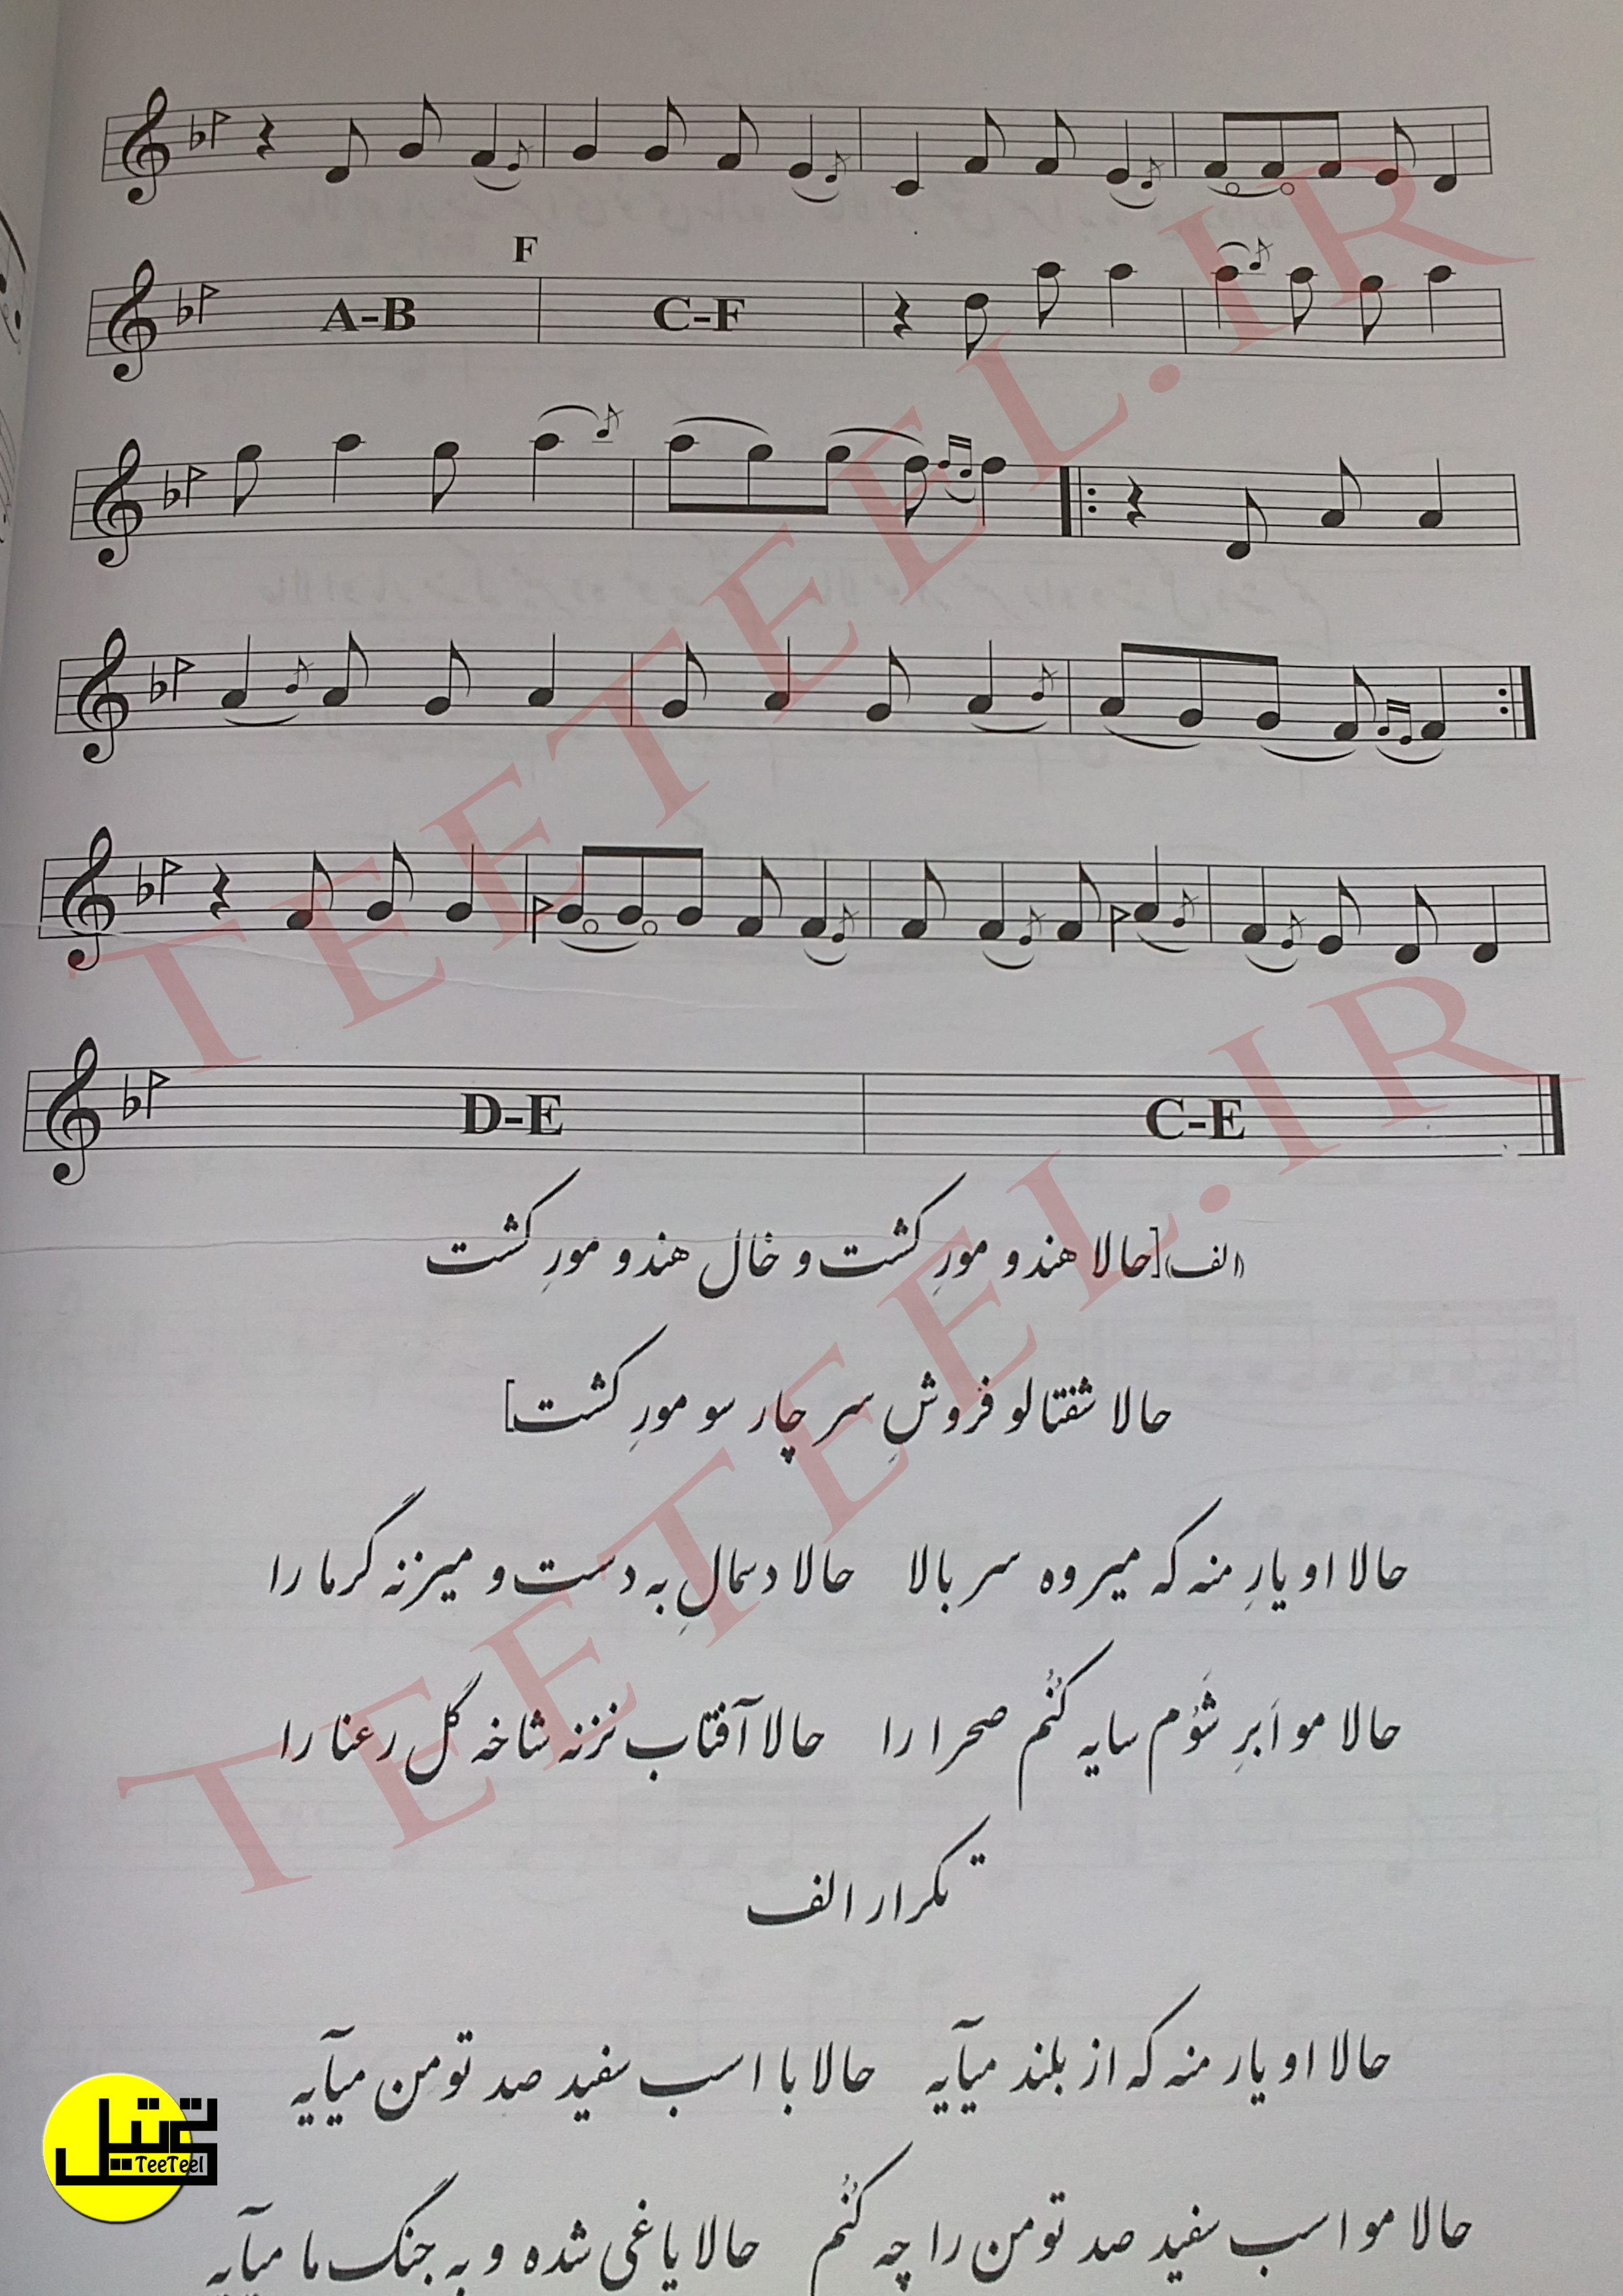 F
A-B C-F
D-E C-E
(الف) [حالا هندو مورِ کشت و خال هندو مورِ کشت
حالا شفتالو فروشِ سر چار سو مورِ کشت]
حالا او یارِ منه که میروه سر بالا حالا دسمالِ به دست و میزنه گرما را
حالا مو اَبرِ شَوُم سایه کُنُم صحرا را حالا آفتاب نزنه شاخه گل رعنا را
تکرار الف
حالا او یار منه که از بلند میآیه حالا با اسب سفید صد تومن میآیه
حالا مو اسب سفید صد تومن را چه کُنُم حالا یاغی شده و به جنگ ما میآیه
TEETEEL.IR
TEETEEL.IR
تیتیل
TeeTeel